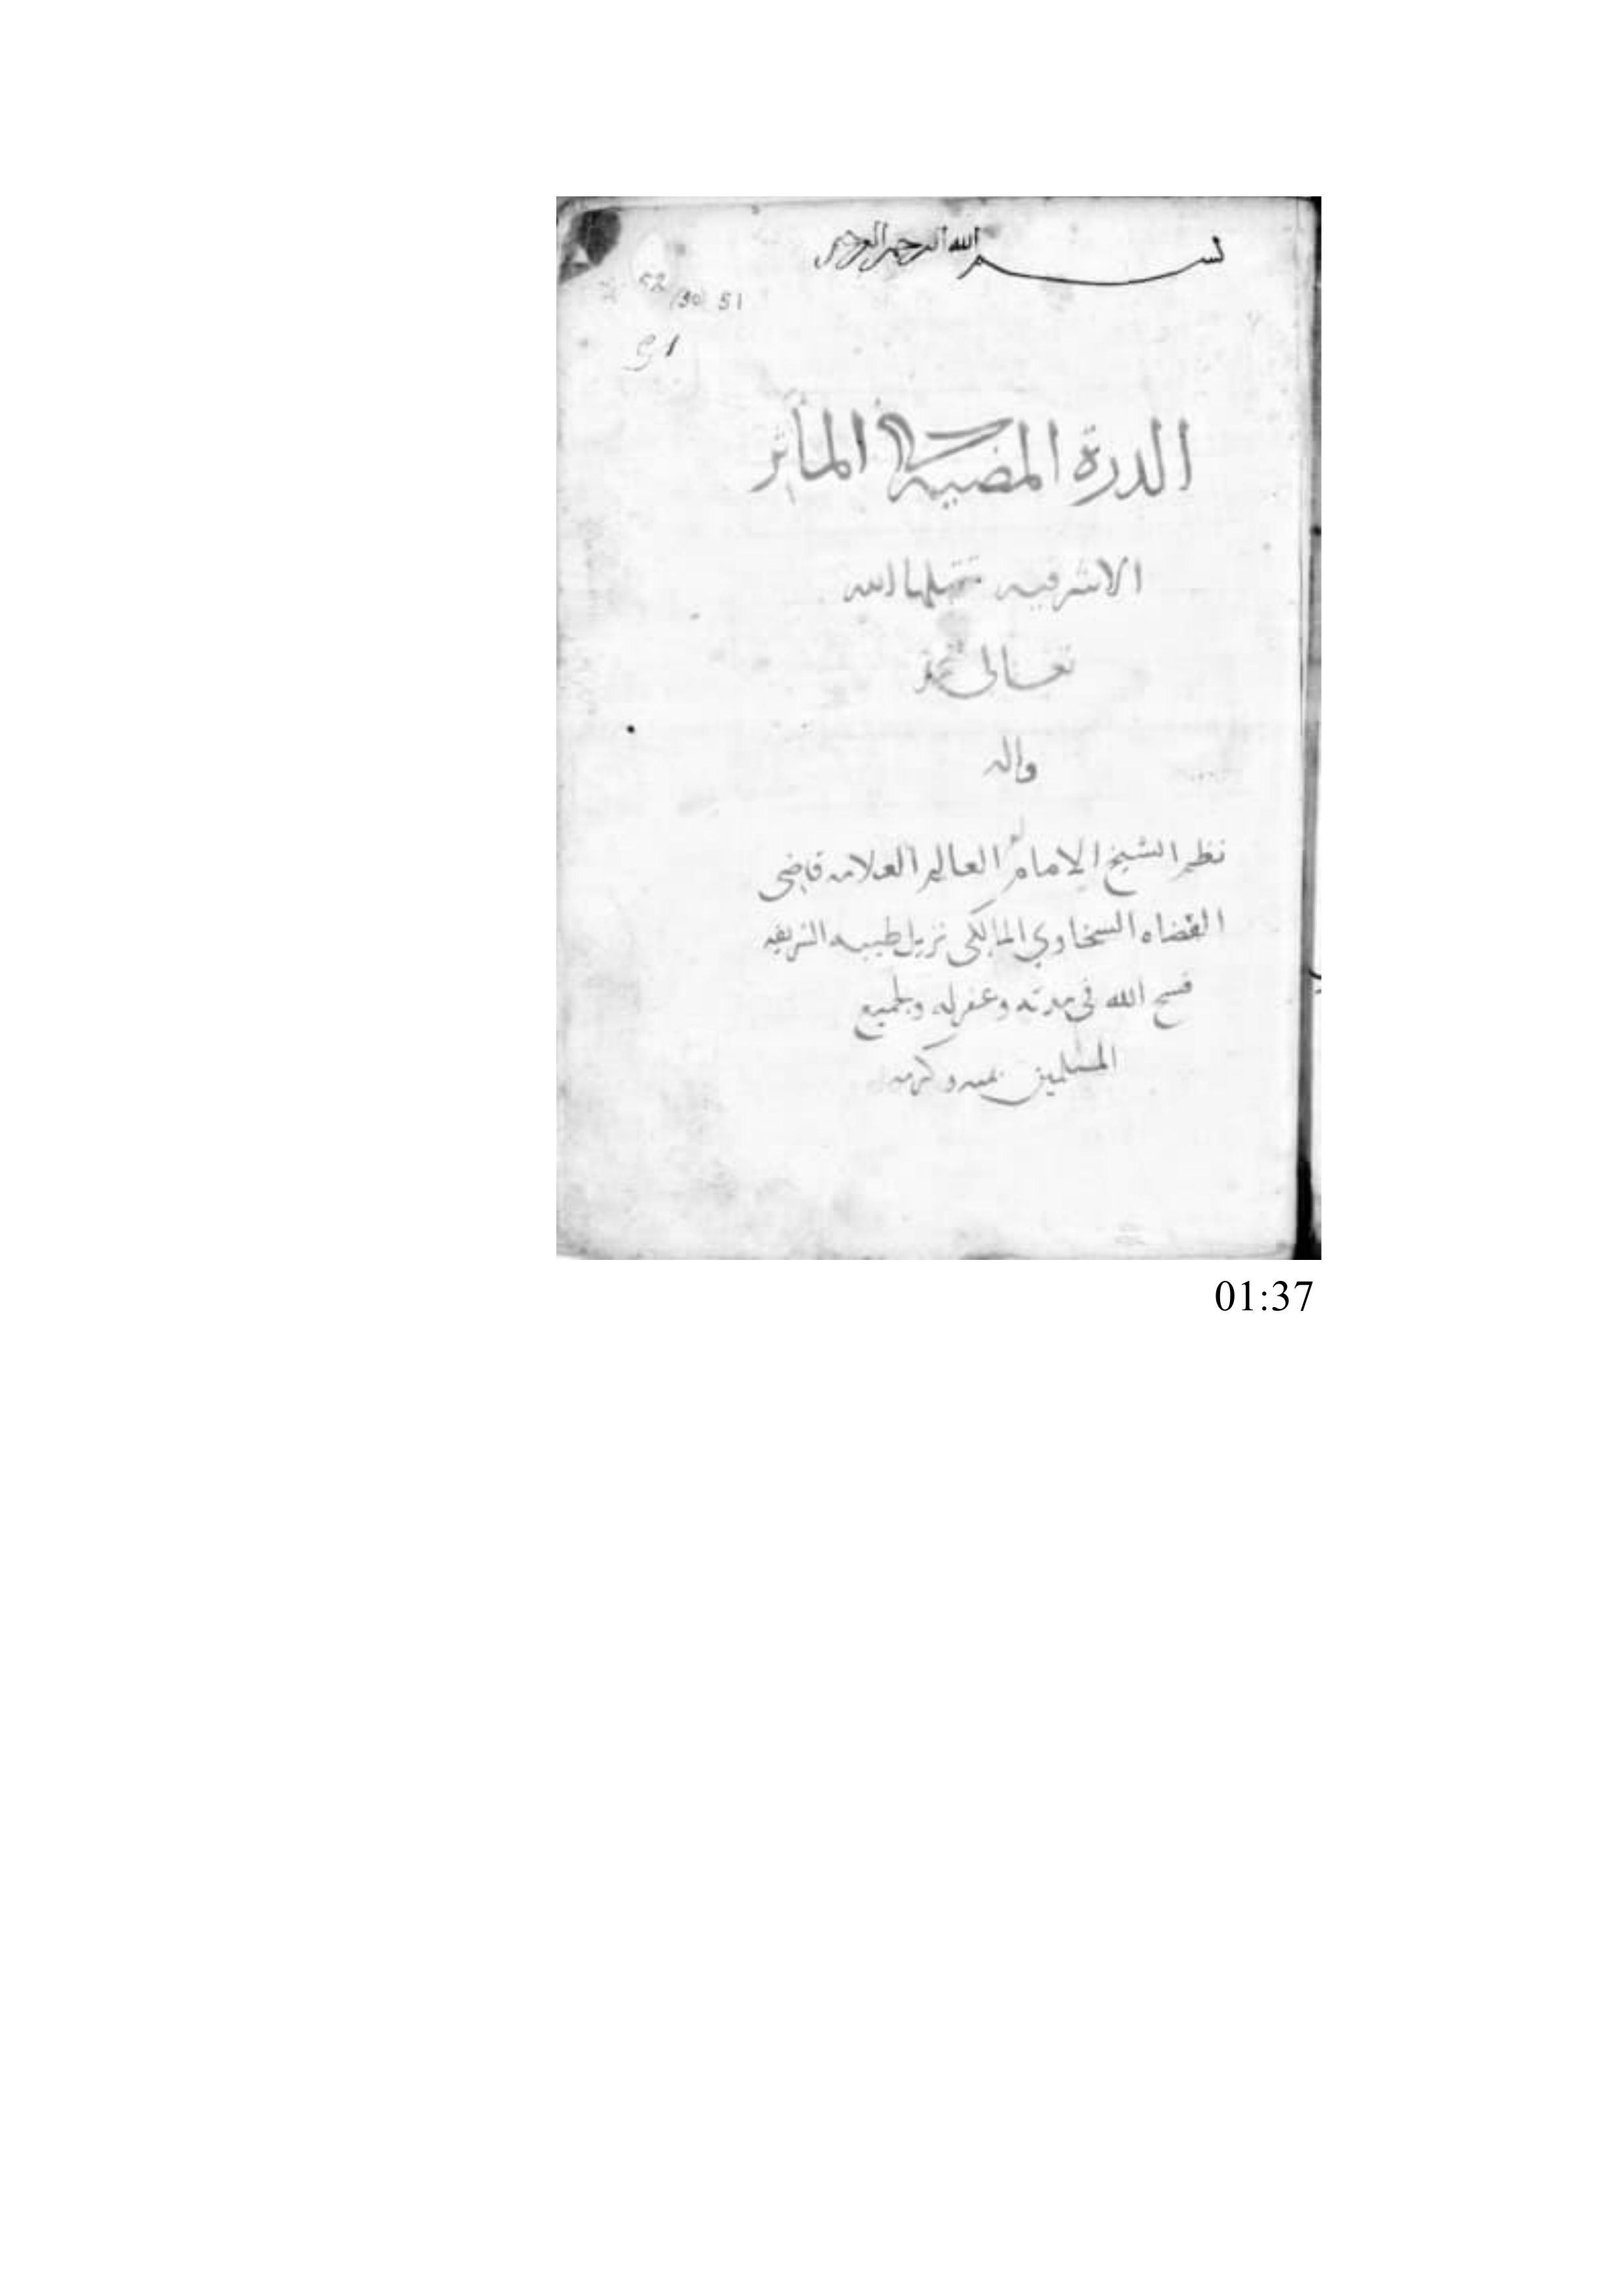 بسم الله الرحمن الرحيم
52 (50) 51
51
الدرة المضية في المآثر
الاشرفيه تقبلها الله
تعالى بمحمد
واله
نظم الشيخ الامام العالم العلامه قاضى
القضاه السخاوي المالكى نزيل طيبه الشريفه
فسح الله فى مدته وغفر له ولجميع
المسلمين بمنه وكرمه
01:37